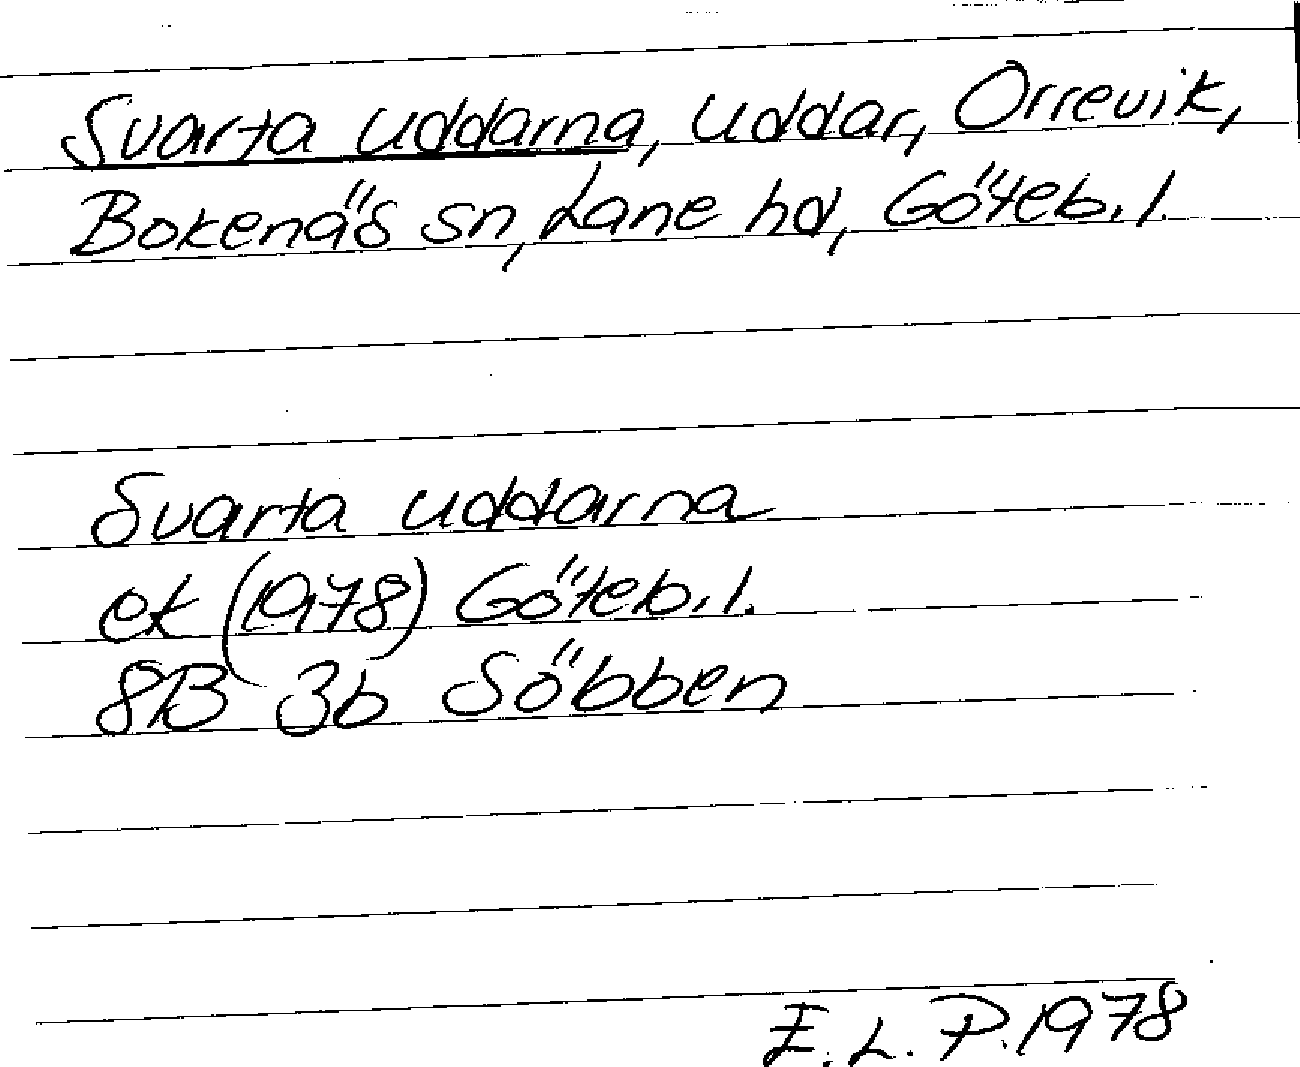 Svarta uddarna, uddar, Orrevik,
Bokenäs sn, Lane hd, Göteb. l.
Svarta uddarna
ek (1978) Göteb. l.
8B 3b Söbben
E. L. P. 1978